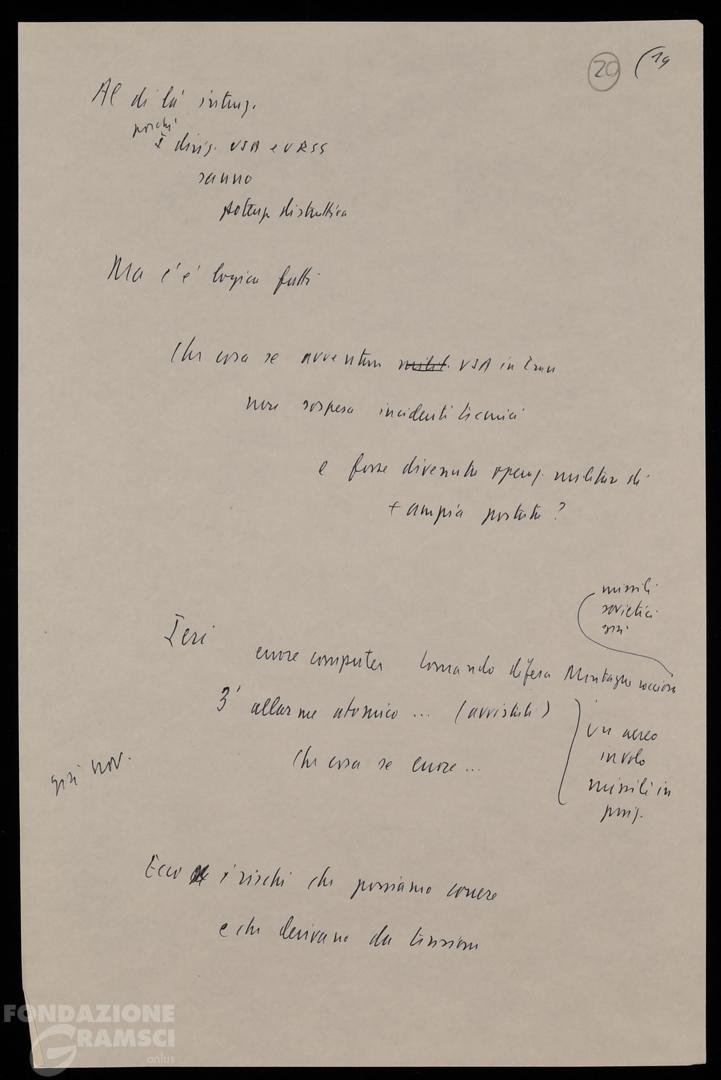 20 (19
Al di là intenz.
poiché
I dirig. USA e URSS
sanno
potenza distruttiva
Ma c'è logica fatti
Che cosa se avventura milit. USA in Iran
non sospesa incidenti tecnici
e fosse divenuta operaz. militare di
+ ampia portata?
missili
sovietici
Ieri errore computer Comando difesa Montagne rocciose
3' allarme atomico ... (avvistati)
un aereo
in volo
missili in
Che cosa se errore ...
già nov.
Ecco i rischi che possiamo correre
e che derivano da tensioni
FONDAZIONE
GRAMSCI
onlus